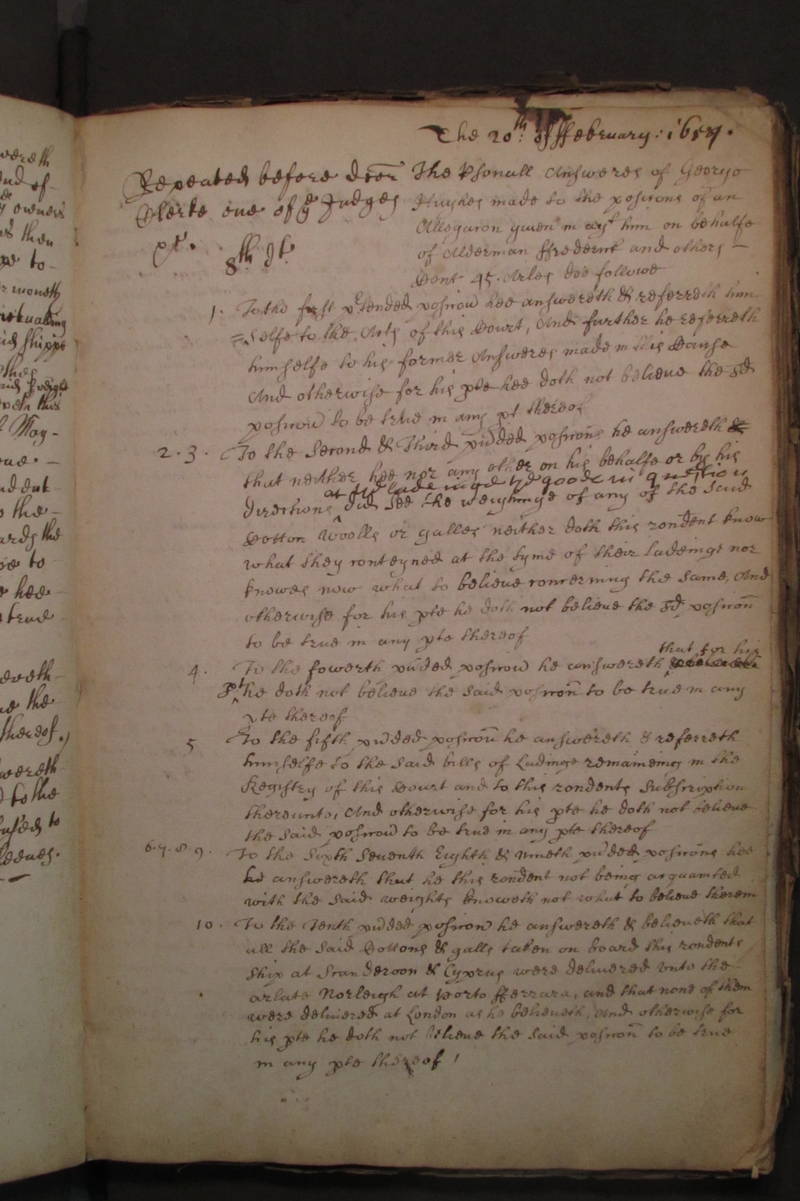 wereth
and of
ye owners
as then
ge to
r moneth
id shipps
veth this
May
eve
ndent
o the
ards the
oe to
e hee
true
wereth
ue the
thereof
wereth
to the
the 20th. of ffebruary: 1657.
Repeated before doctor
Clerke one of ye Judges
8th
The Psonall Answeres of George
Hughes made to the positions of an
Allegacion given in agt him on behalfe
of Alderman ffrederick and others
Cont 45. Arles doe followe
1. To the first ptended position hee answereth & referreth him
=selfe to the Acts of this Court, And further he referreth
himselfe to his former Answeres made in this Cause
And otherwise for his pte hee doth not believe the sd
position to be true in any pt thereof
2.3. To the second & Third pnded positions he answereth
that neither hee nor any other on his behalfe or by his
at the ladeinge of the goods in question
directions did see the weighinge of any of the said
Cotton Woolls or galles neither doth this rondent know
what they conteyned at the tyme of their ladeinge nor
knowes now what to believe concerning the same, And
otherwise for his pte he doth not believe the sd position
to be true in any pte thereof
4. To the fowerth pnded position he answereth that for his
pte he doth not believe the said position to be true in any
pte thereof
5 To the fifth pnded position he answereth & referreth
himselfe to the said bills of Ladinge remaineing in the
Registry of this Court and to this rondents subscription
thereunto, And otherwise for his pte he doth not believe
the said position to be true in any pte thereof
6.7.8.9. To the Sixth Seventh Eighth & nineth pnded positions hee
answereth that he this rondent not being acquainted
with the said weights knoweth not what to believe therein
10. To the Tenth pnded position he answereth & believeth that
all the said Cottons & galls taken on board this rondents
ship at Scanderoon & Cyprus were delivered unto the
arlate Norleigh at porto fferrara, and that none of them
were delivered at London as he believeth, And otherwise for
his pte he doth not believe the said position to be true
in any pte thereof /